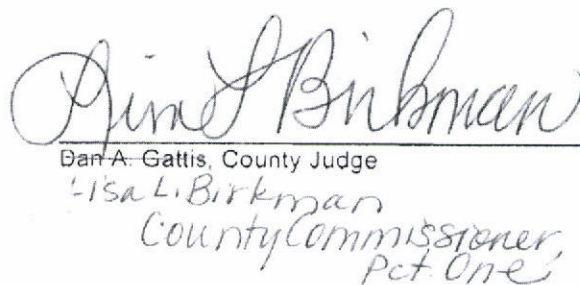 Lisa L Birkman
Dan A. Gattis, County Judge
Lisa L. Birkman
County Commissioner,
Pct. One